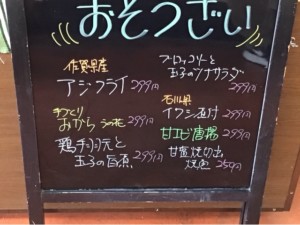 おそうざい
佐賀県産
アジフライ 299円
手づくり
おから うの花 299円
鶏手羽元と
玉子の旨煮 299円
ブロッコリーと
玉子のツナサラダ
299円
石川県
イワシ 299円
甘エビ唐揚 299円
甘塩 切出
259円